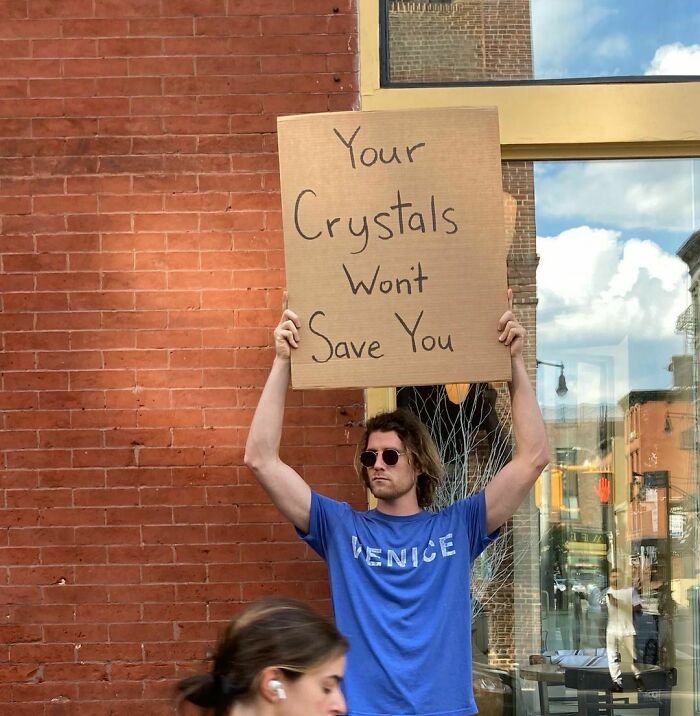 Your
Crystals
Won't
Save You
VENICE